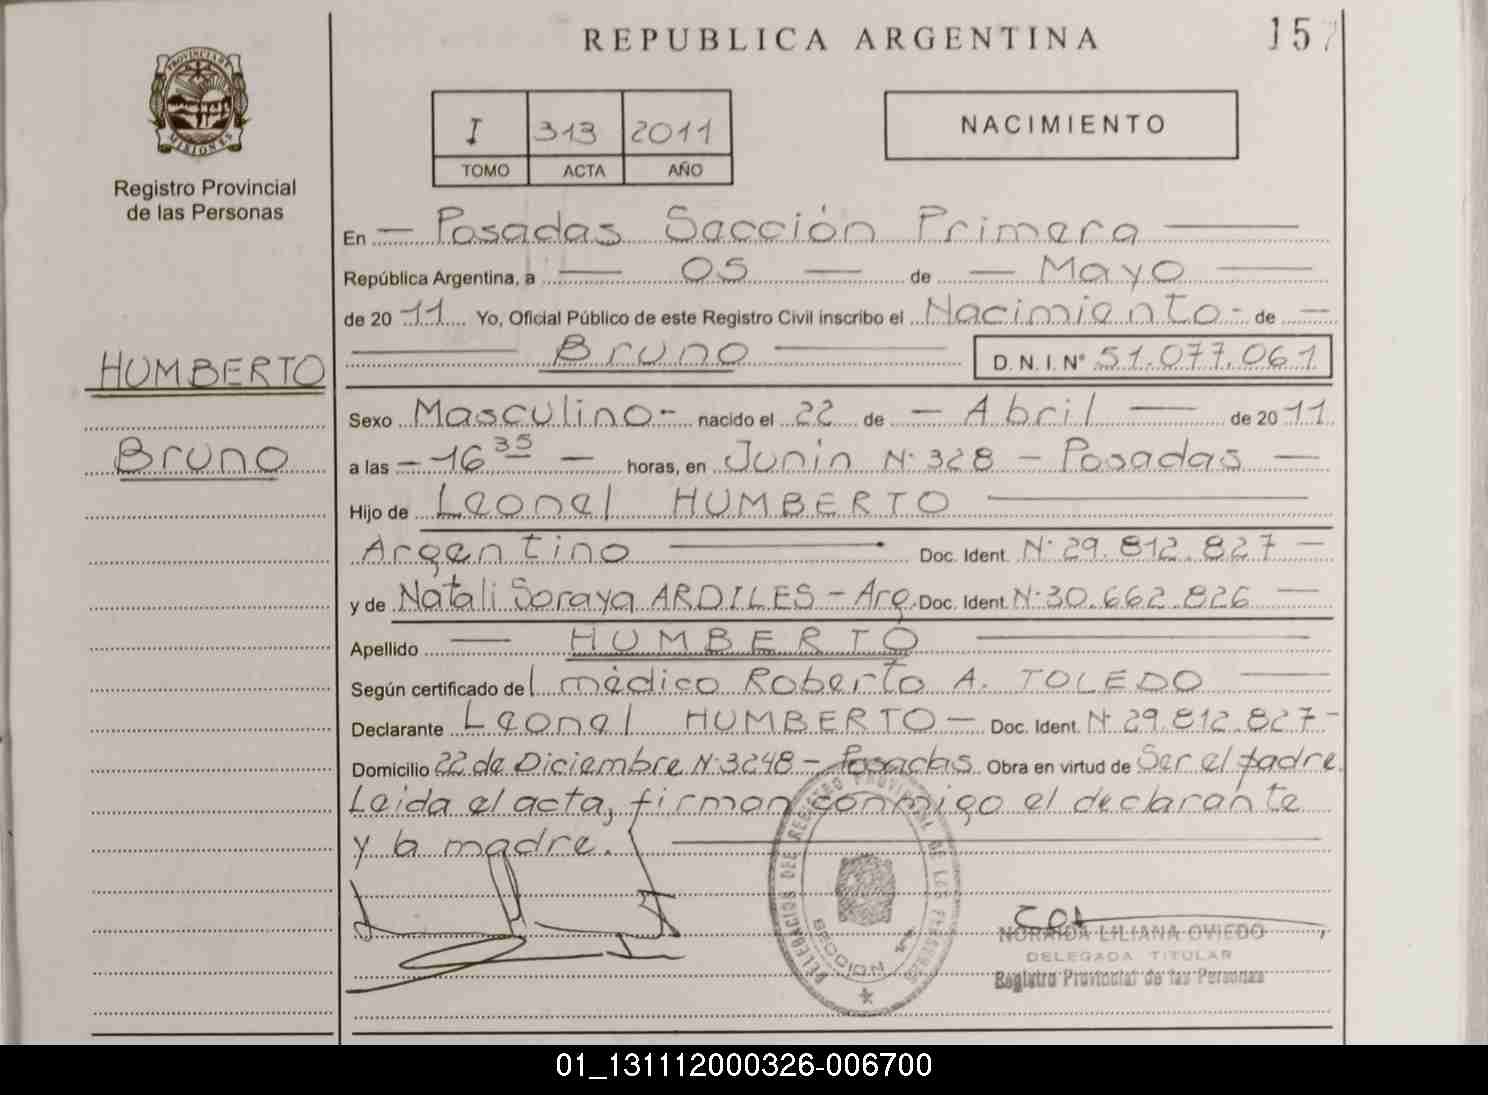 REPUBLICA ARGENTINA
157
PROVINCIA DE
MISIONES
Registro Provincial
de las Personas
I 313 2011
TOMO ACTA AÑO
NACIMIENTO
En — Posadas Sección Primera —
República Argentina, a — 05 — de — Mayo —
de 20 11 Yo, Oficial Público de este Registro Civil inscribo el Nacimiento - de —
— Bruno — D.N.I. N° 51.077.061
HUMBERTO
Bruno
Sexo Masculino - nacido el 22 de — Abril — de 20 11
a las — 16 35 — horas, en Junín N° 328 — Posadas —
Hijo de Leonel HUMBERTO —
Argentino — Doc. Ident. N° 29.812.827 —
y de Natali Soraya ARDILES — Arg. Doc. Ident. N° 30.662.826 —
Apellido — HUMBERTO —
Según certificado del médico Roberto A. TOLEDO —
Declarante Leonel HUMBERTO — Doc. Ident. N° 29.812.827 -
Domicilio 22 de Diciembre N° 3248 — Posadas Obra en virtud de Ser el padre.
Leida el acta, firman conmigo el declarante
y la madre. —
DELEGACION DEL REGISTRO PROVINCIAL DE LAS PERSONAS
SECCION 1ra
NORAIDA LILIANA OVIEDO
DELEGADA TITULAR
Registro Provincial de las Personas
01_131112000326-006700